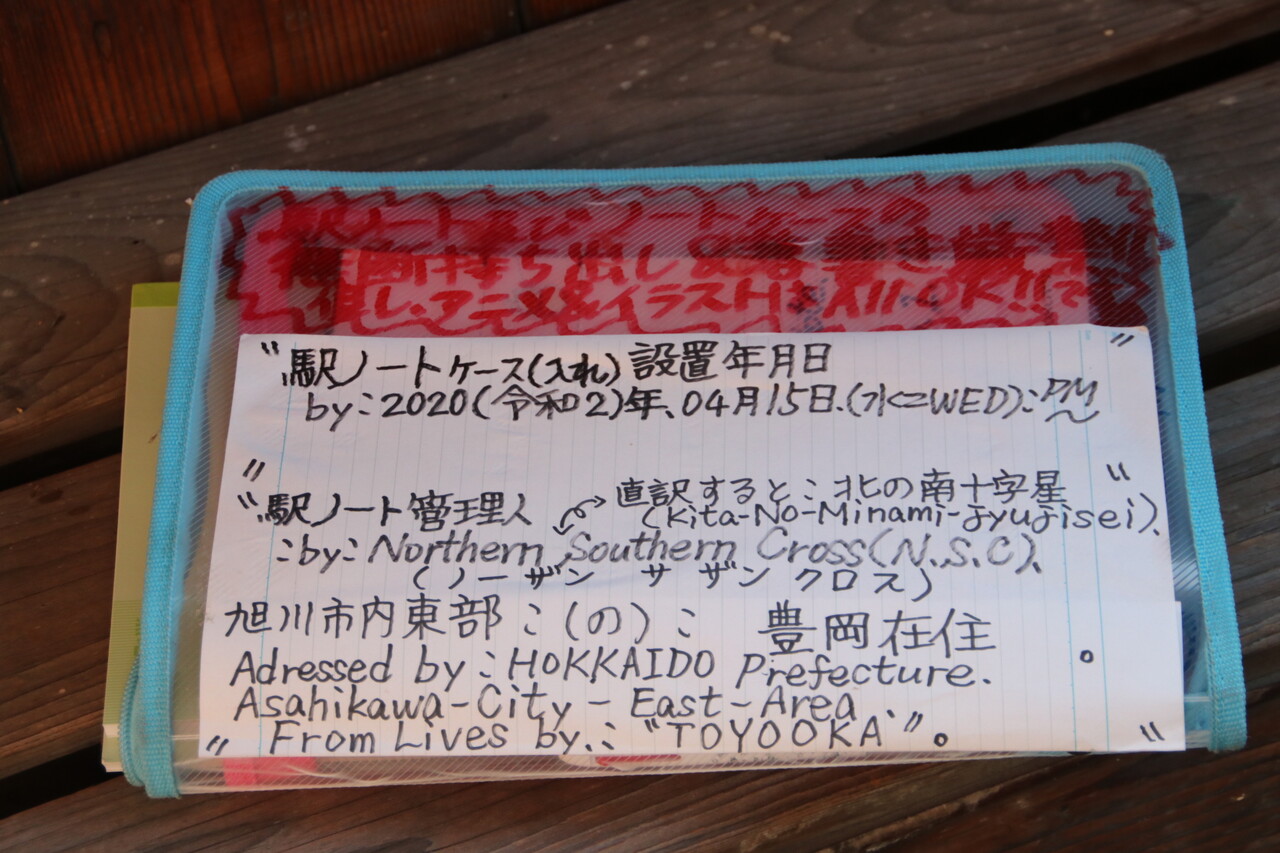 駅ノート ノートケースの
無断持ち出し
アニメ&イラストはAll OK!!で
"駅ノートケース(入れ)設置年月日
by:2020(令和2)年、04月15日.(水<=WED):PM
〃
"駅ノート管理人
直訳すると:北の南十字星
(Kita-No-Minami-jyujisei)、
:by:Northern Southern Cross(N.S.C)、
(ノーザン サザン クロス)
旭川市内東部:(の): 豊岡在住
Adressed by:HOKKAIDO Prefecture.
Asahikawa-City-East-Area.
From Lives by.:"TOYOOKA"。